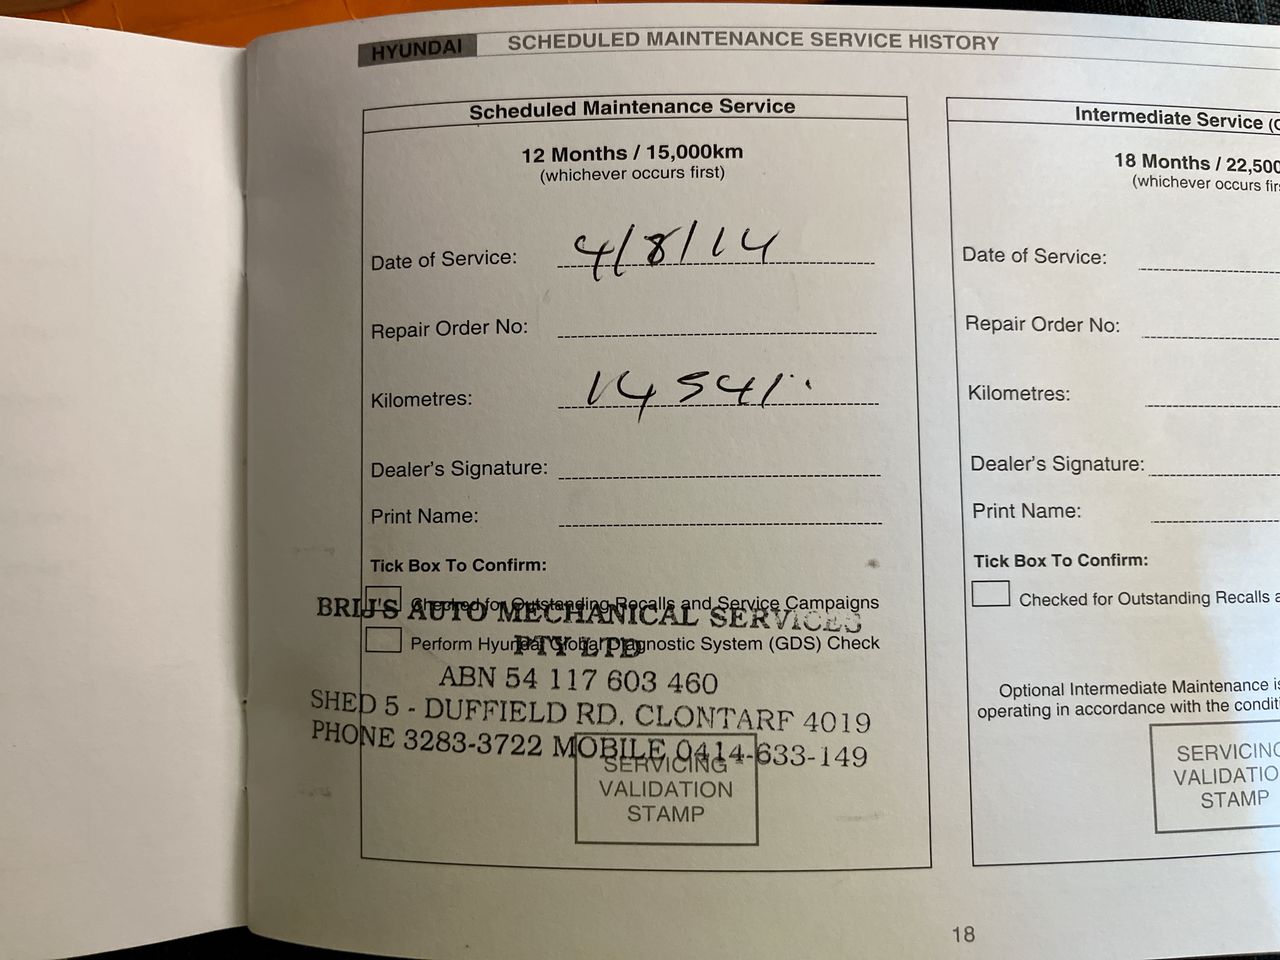 HYUNDAI SCHEDULED MAINTENANCE SERVICE HISTORY
Scheduled Maintenance Service
12 Months / 15,000km
(whichever occurs first)
Date of Service: 4/8/14
Repair Order No:
Kilometres: 14541
Dealer's Signature:
Print Name:
Tick Box To Confirm:
Checked for Outstanding Recalls and Service Campaigns
Perform Hyundai Global Diagnostic System (GDS) Check
BRIJ'S AUTO MECHANICAL SERVICES
PTY LTD
ABN 54 117 603 460
SHED 5 - DUFFIELD RD. CLONTARF 4019
PHONE 3283-3722 MOBILE 0414-633-149
SERVICING
VALIDATION
STAMP
Intermediate Service
18 Months / 22,500
(whichever occurs
Date of Service:
Repair Order No:
Kilometres:
Dealer's Signature:
Print Name:
Tick Box To Confirm:
Checked for Outstanding Recalls
Optional Intermediate Maintenance
operating in accordance with the
SERVICING
VALIDATIO
STAMP
18